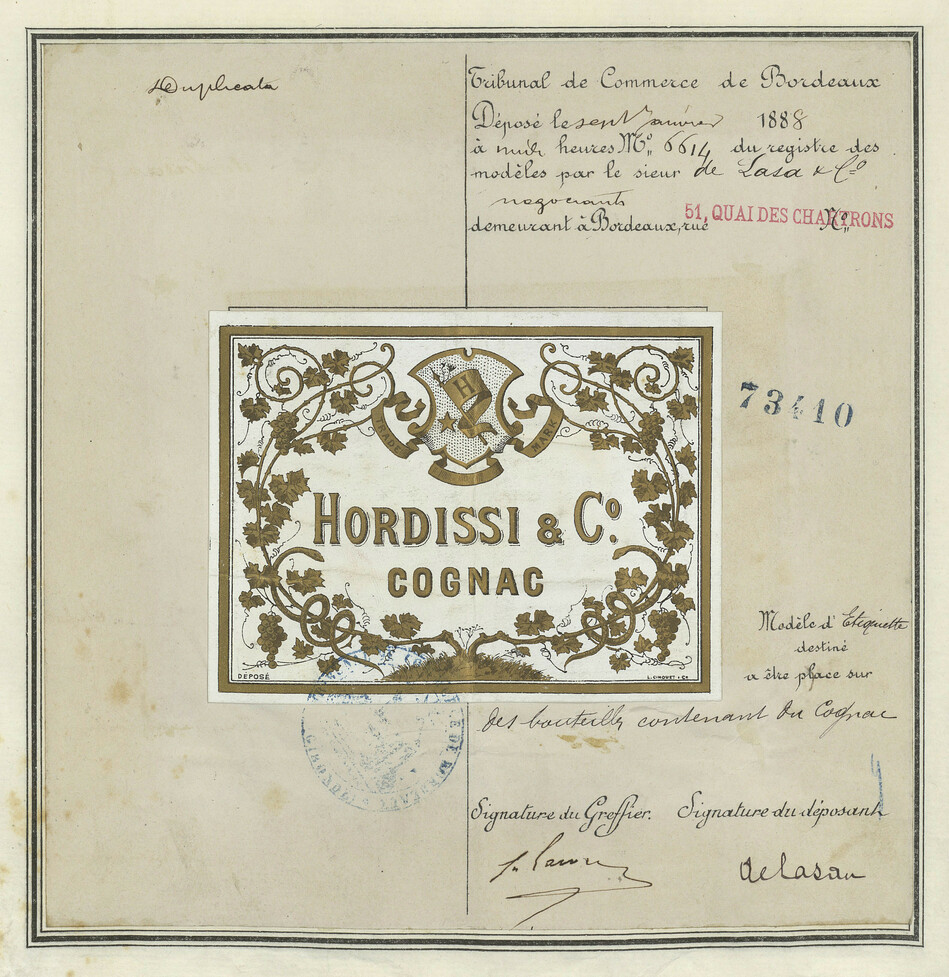 Duplicata
Tribunal de Commerce de Bordeaux
Déposé le sept Janvier 1888
à midi heures Nº. 6614 du registre des
modèles par le sieur de Lasa & Cº
négociants
demeurant à Bordeaux, rue Nº.
51, QUAI DES CHARTRONS
73410
TRADE MARK
H
HORDISSI & Cº.
COGNAC
DÉPOSÉ
Modèle d'Etiquette
destiné
a être place sur
des bouteilles contenant du Cognac
GIRONDE
Signature du Greffier. Signature du déposant